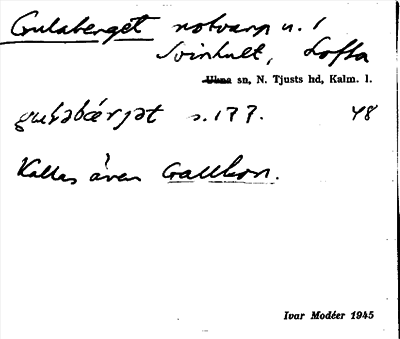 Gulaberget notvarp u. /
Svinhult, Lofta
Ukna sn, N. Tjusts hd, Kalm. l.
s. 177. 48
Kallas även Gallkon.
Ivar Modéer 1945